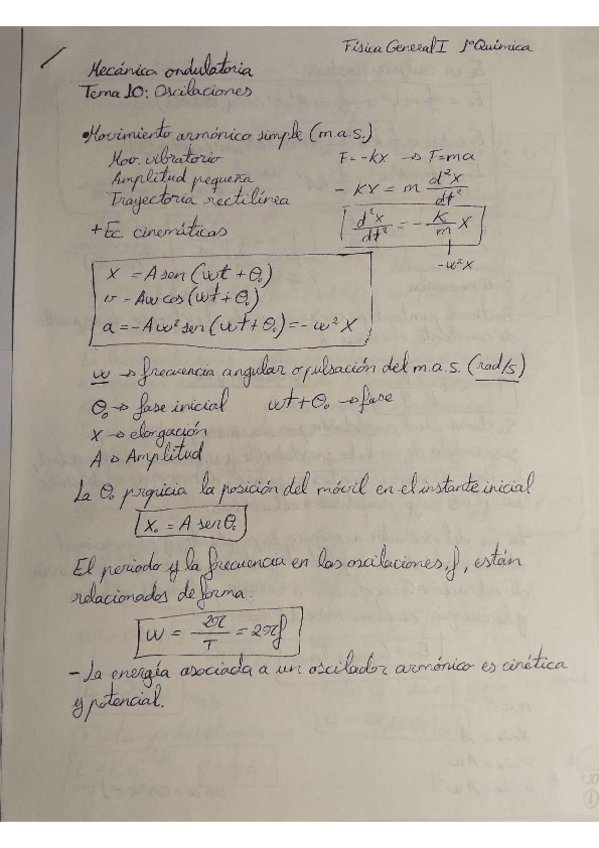 Física General I 1º Química
Mecánica ondulatoria
Tema 10: Oscilaciones
•Movimiento armónico simple (m.a.s.)
Mov. vibratorio F = -kx → F=ma
Amplitud pequeña - kx = m d²x/dt²
Trayectoria rectilínea
+ Ec cinemáticas d²x/dt² = - k/m x
-ω²x
x = A sen (ωt + θ₀)
v = Aω cos (ωt + θ₀)
a = -Aω² sen (ωt + θ₀) = -ω² x
ω → frecuencia angular o pulsación del m.a.s. (rad/s)
θ₀ → fase inicial ωt + θ₀ → fase
x → elongación
A → Amplitud
La θ₀ la posición del móvil en el instante inicial
x₀ = A sen θ₀
El periodo y la frecuencia en las oscilaciones, f, están
relacionados de forma:
ω = 2π/T = 2πf
- La energía asociada a un oscilador armónico es cinética
y potencial.